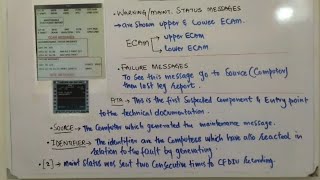 • WARNING/MAINT. STATUS MESSAGES
→ are shown upper & Lower ECAM.
ECAM
→ upper ECAM
→ lower ECAM
• FAILURE MESSAGES
To see this message go to Source (Computer)
then last leg report.
ATA → This is the first suspected component & Entry point
to the technical documentation.
• SOURCE → The Computer which generated the maintenance message.
• IDENTIFIER → The identifier are the Computers which have also reacted in
relation to the fault by generating.
• [2] → maint status was sent two consecutive times to CFDIU recording.